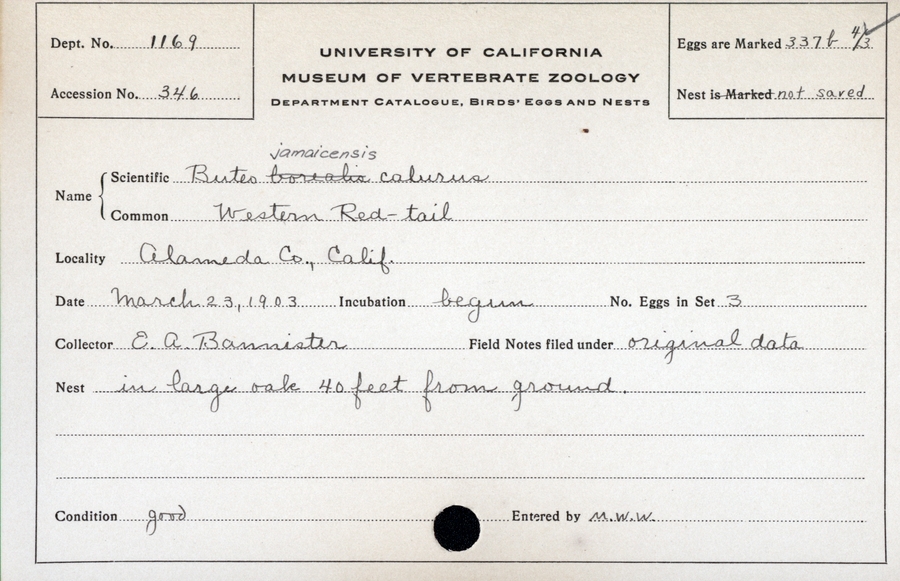 Dept. No. 1169
Accession No. 346
UNIVERSITY OF CALIFORNIA
MUSEUM OF VERTEBRATE ZOOLOGY
DEPARTMENT CATALOGUE, BIRDS' EGGS AND NESTS
Eggs are Marked 337b 4/3
Nest is Marked not saved
jamaicensis
Name
Scientific Buteo borealis calurus
Common Western Red-tail
Locality Alameda Co., Calif.
Date March 23, 1903 Incubation begun No. Eggs in Set 3
Collector E. A. Bannister Field Notes filed under original data
Nest in large oak 40 feet from ground.
Condition good Entered by M.W.W.